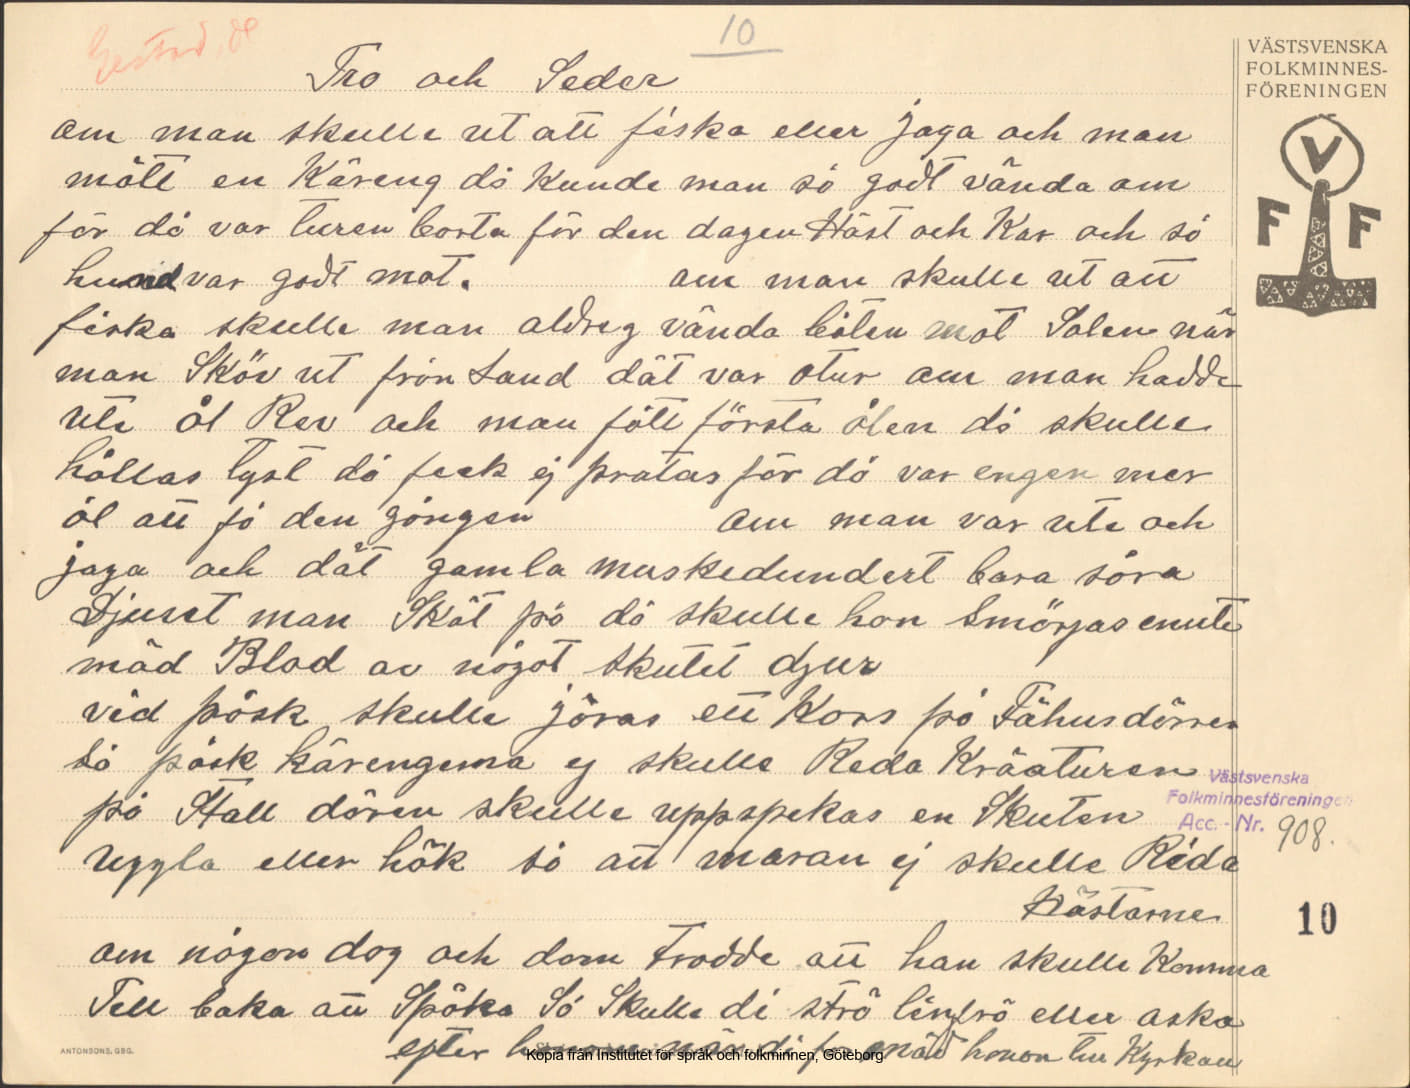 Gestad, Dl
10
VÄSTSVENSKA
FOLKMINNES-
FÖRENINGEN
V
F F
Tro och Seder
om man skulle ut att fiska eller jaga och man
mött en Käreng då kunde man så godt vända om
för då var turen borta för den dagen Häst och Kar och så
hund var godt mot. om man skulle ut att
fiska skulle man aldreg vända båten mot Solen när
man Sköv ut från Land dät var otur om man hadde
ute ål Rev och man fått första ålen då skulle
hållas tyst då feck ej pratas för då var engen mer
ål att få den gången om man var ute och
jaga och dät gamla muskedundert bara såra
Djuret man Skät på då skulle hon Smörjas enute
mäd Blod av något skutet djur
vid påsk skulle jöras ett Kors på Fähusdörren
så påsk kärengerna ej skulle Reda Kräaturen
på Stall dören skulle uppspekas en Skuten
Uggla eller hök så att maran ej skulle Rida
Hästarne
om någon dog och dom trodde att han skulle Komma
Tell baka att Spöka Så Skulle di strö linfrö eller aska
efter honom när di for mäd honon till Kyrkan
Västsvenska
Folkminnesföreningen
Acc. - Nr. 908.
10
ANTONSONS, GBG.
Kopia från Institutet för språk och folkminnen, Göteborg